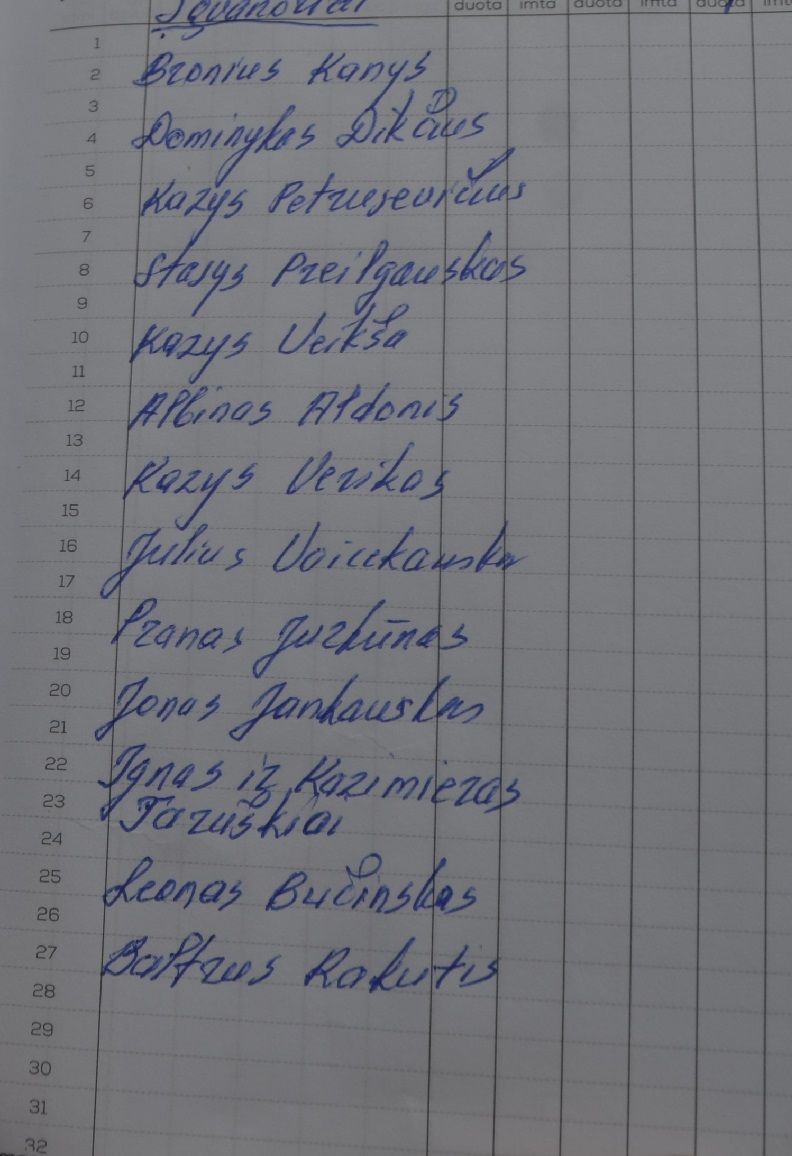 duota imta duota imta duota imta
1
2 Bronius Kanys
3
4 Dominykas Dikčius
5
6 Kazys Petruševičius
7
8 Stasys Preilgauskas
9
10 Kazys Veikša
11
12 Albinas Aldonis
13
14 Kazys Verikas
15
16 Julius Voicekauskas
17
18 Pranas Jurkūnas
19
20 Jonas Jankauskas
21
22 Ignas ir Kazimieras
23 Taruškiai
24
25 Leonas Bučinskas
26
27 Baltrus Rakutis
28
29
30
31
32